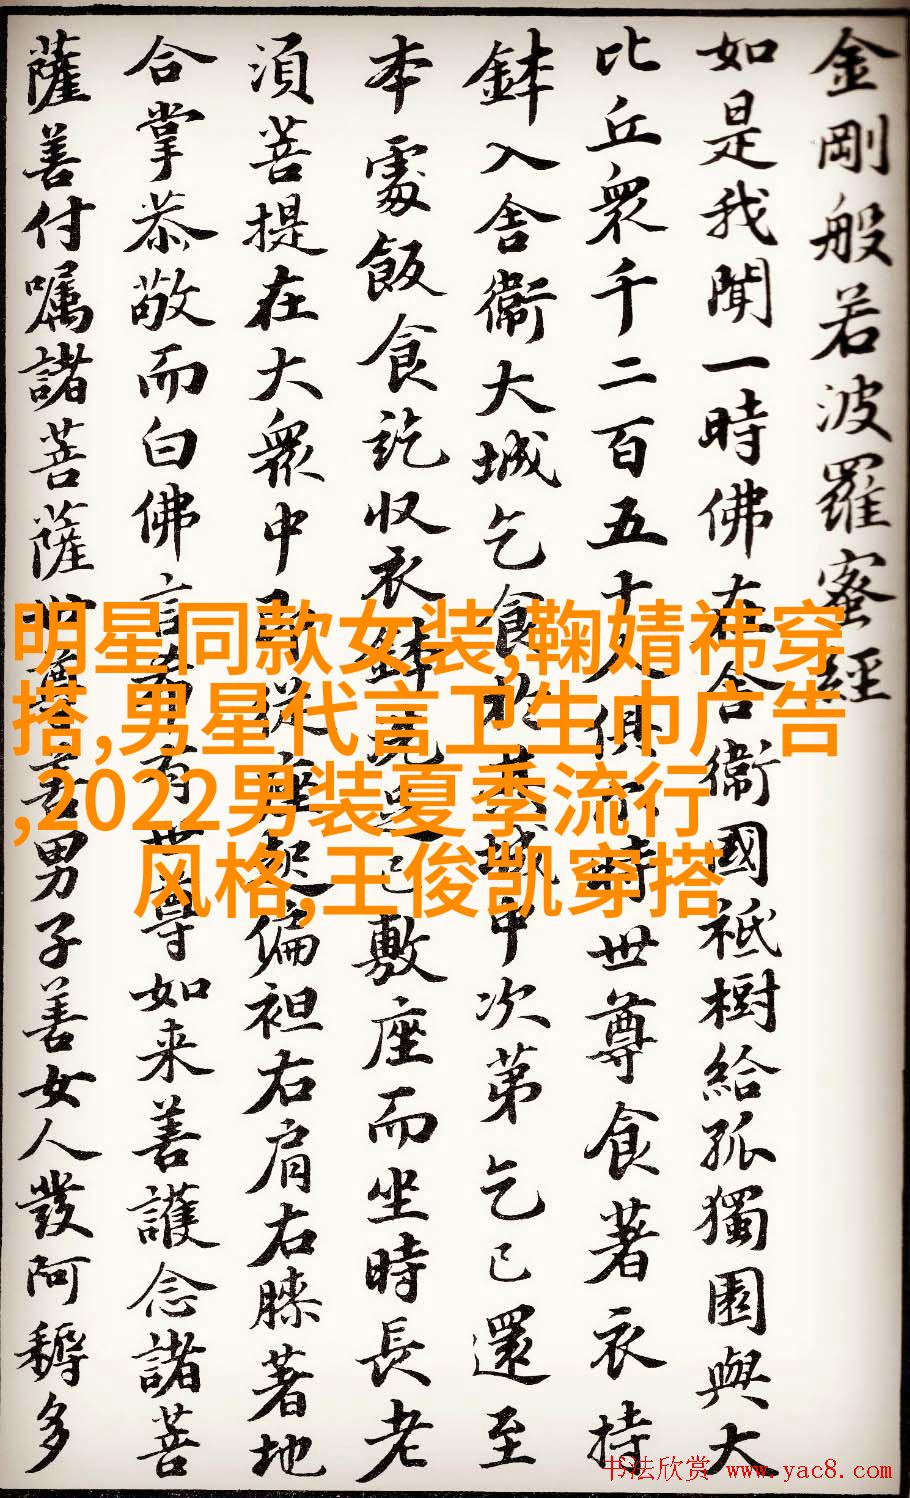 金剛般若波羅蜜經
如是我聞一時佛在舍衞國祇樹給孤獨園與大
比丘衆千二百五十人俱爾時世尊食著衣持
鉢入舍衞大城乞食於其城中次第乞已還至
本處飯食訖收衣鉢洗足已敷座而坐時長老
須菩提在大衆中即從座起偏袒右肩右膝著地
合掌恭敬而白佛言希有世尊如来善護念諸菩
薩善付嘱諸菩薩世尊善男子善女人發阿耨多
明星同款女装,鞠婧祎穿
搭,男星代言卫生巾广告
,2022男装夏季流行
风格,王俊凯穿搭
书法欣赏 www.yac8.com